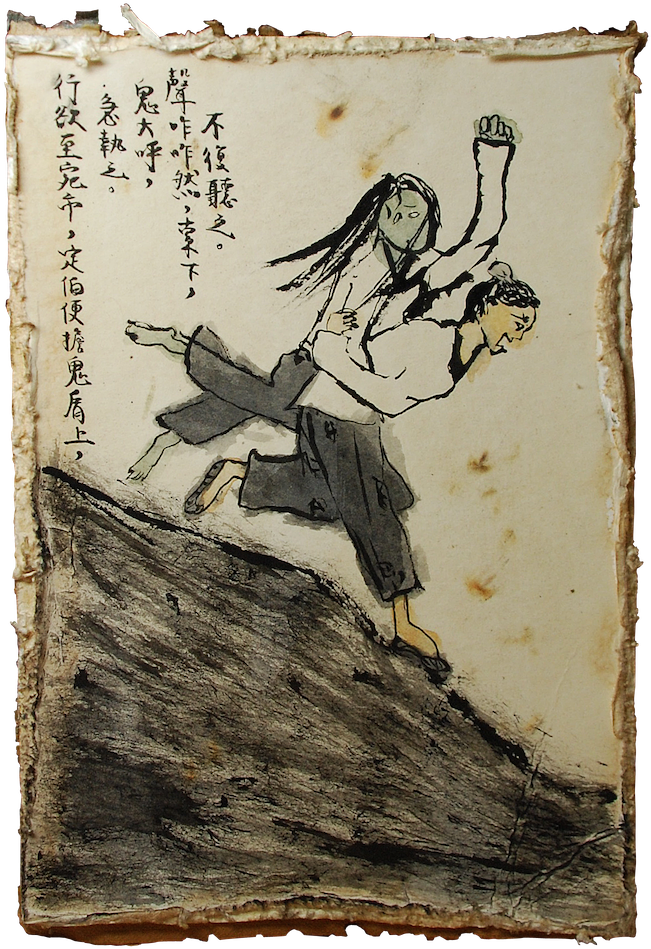 行欲至宛市，定伯便擔鬼肩上，
急執之。
鬼大呼，
聲咋咋然，索下，
不復聽之。